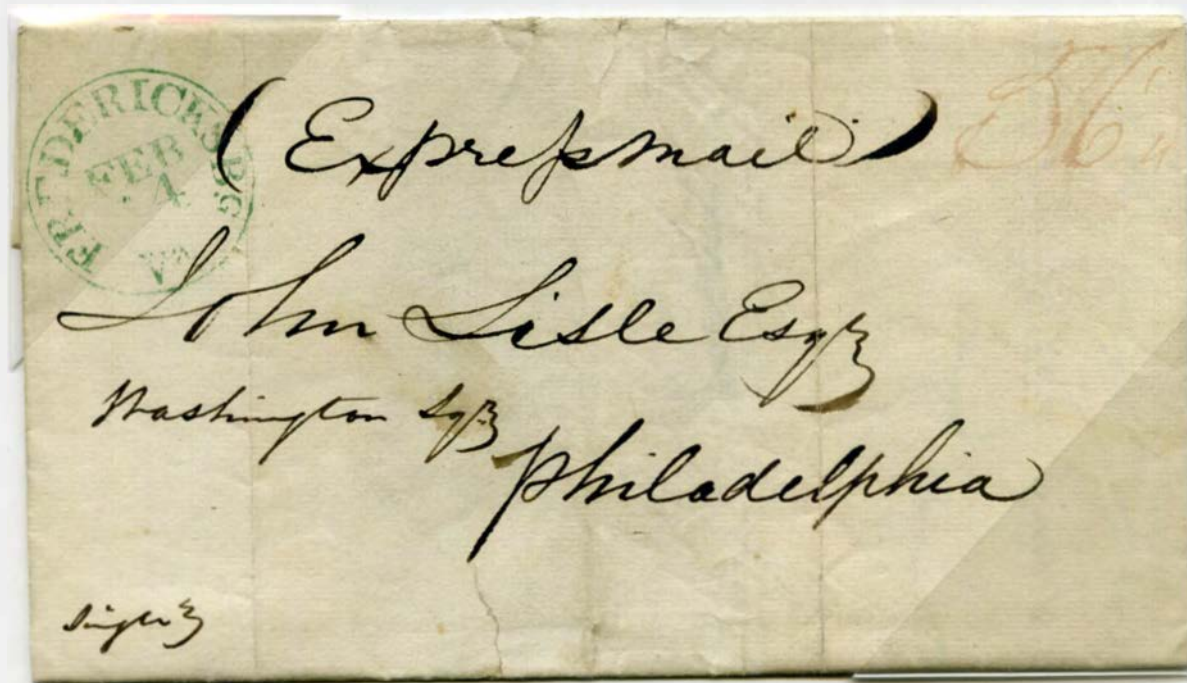 FREDERICKSBG Va
FEB
4
(Expreſsmail)
56¼
John Lisle Esqr
Washington Sqr
Philadelphia
Single